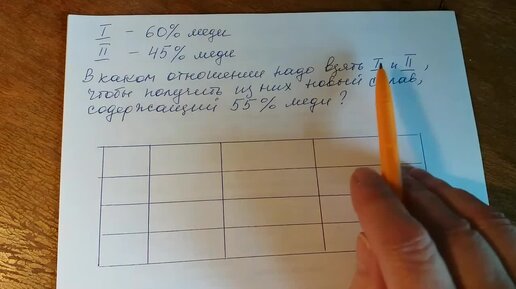 I - 60% меди
II - 45% меди
В каком отношении надо взять I и II,
чтобы получить из них новый сплав,
содержащий 55% меди?